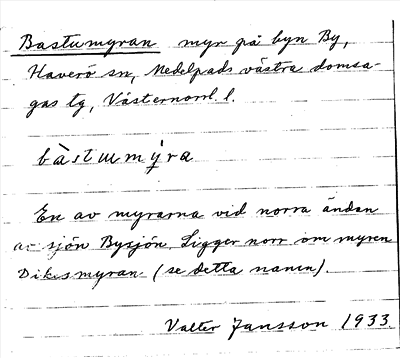 Bastumyran myr på byn By,
Haverö sn, Medelpads västra domsa-
gas tg, Västernorrl. l.
bàstumý̨ra
En av myrarna vid norra ändan
av sjön Bysjön. Ligger norr om myren
Dikesmyran (se detta namn).
Valter Jansson 1933.